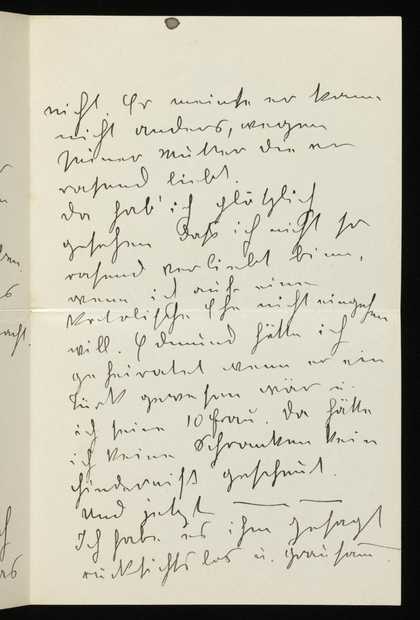 nicht. Er meinte er kann
nicht anders, wegen
seiner Mutter die er
rasend liebt.
Da hab' ich plötzlich
gesehen Daß ich nicht so
rasend verliebt binn,
wenn ich auf einen
Katolische Ehe nicht eingehen
will. Edmund hätte ich
geheiratet wenn er ein
Türk gewesen wär u.
ich seine 10 Frau. Da hätte
ich keine Schranken kein
Hinderniss gescheut.
Und jetzt — —
Ich habe es ihm gesagt
rücksichtslos u. grausam